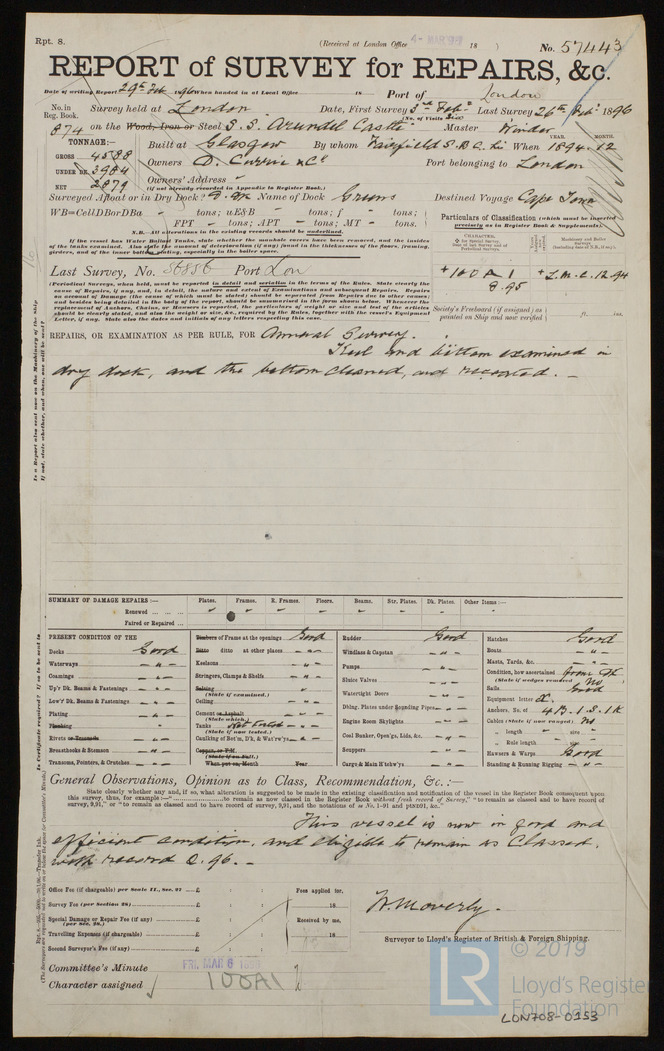 Rpt. 8.
(Received at London Office 4- MAR 96 18 )
No. 57443
REPORT of SURVEY for REPAIRS, &c.
Date of writing Report 29th Feb 1896 when handed in at Local Office 18 Port of London
No. in Reg. Book. Survey held at London Date, First Survey 3rd Feb. Last Survey 26th Feb. 1896
(No. of Visits Six)
874 on the Wood, Iron or Steel S.S. Arundel Castle Master Winder
TONNAGE:— Built at Glasgow By whom Fairfield S.B.C. Li. When 1894.12
YEAR. MONTH.
GROSS 4588 Owners D. Currie & Co Port belonging to London
UNDER DK. 3984 Owners' Address
NET 2879 (if not already recorded in Appendix to Register Book.)
Surveyed Afloat or in Dry Dock? D. Dk Name of Dock Greens Destined Voyage Cape Town
WB=CellDBorDBa tons; uE&B tons; f tons;
FPT tons; APT tons; MT tons.
Particulars of Classification (which must be inserted precisely as in Register Book & Supplements).
N.B.—All alterations in the existing records should be underlined.
If the vessel has Water Ballast Tanks, state whether the manhole covers have been removed, and the insides
of the tanks examined. Also state the amount of deterioration (if any) found in the thicknesses of the floors, framing,
girders, and of the inner bottom plating, especially in the boiler space.
Last Survey, No. 56886 Port Lon
+100A1 + L.M.C. 12.94
8.95
(Periodical Surveys, when held, must be reported in detail and seriatim in the terms of the Rules. State clearly the
cause of Repairs, if any, and, in detail, the nature and extent of Examinations and subsequent Repairs. Repairs
on account of Damage (the cause of which must be stated) should be separated from Repairs due to other causes;
and besides being detailed in the body of the report, should be summarised in the form shown below.
Society's Freeboard (if assigned) as painted on Ship and now verified ft. ins.
REPAIRS, OR EXAMINATION AS PER RULE, FOR Annual Survey.
Keel and bottom examined in
dry dock, and the bottom cleaned, and recoated.
SUMMARY OF DAMAGE REPAIRS:— Plates. Frames. R. Frames. Floors. Beams. Str. Plates. Dk. Plates. Other Items:—
Renewed
Faired or Repaired
PRESENT CONDITION OF THE
Decks Good
Waterways
Coamings
Up'r Dk. Beams & Fastenings
Low'r Dk. Beams & Fastenings
Plating
Planking
Rivets or Treenails
Breasthooks & Stemson
Transoms, Pointers, & Crutches
Timbers of Frame at the openings Good
Ditto ditto at other places
Keelsons
Stringers, Clamps & Shelfs
Salting
(State if examined.)
Ceiling
Cement or Asphalt
(State which.)
Tanks Not tested
(State if now tested.)
Caulking of Bot'm, D'k, & Wat'rw'ys
Copper, or Y.M.
(State if on Felt.)
When put on, Month Year
Rudder Good
Windlass & Capstan
Pumps
Sluice Valves
Watertight Doors
Dblng. Plates under Sounding Pipes
Engine Room Skylights
Coal Bunker, Open'gs, Lids, &c.
Scuppers
Cargo & Main H'tchw'ys
Hatches Good
Boats
Masts, Yards, &c.
Condition, how ascertained from Dk
(State if wedges removed) No
Sails Good
Equipment letter
Anchors. No. of 4B. 1S. 1K
Cables (State if now ranged) No
" length size
" Rule length
Hawsers & Warps Good
Standing & Running Rigging
General Observations, Opinion as to Class, Recommendation, &c.:—
State clearly whether any, and if, so, what alteration is suggested to be made in the existing classification and notification of the vessel in the Register Book consequent upon
this survey, thus, for example:—
This vessel is now in good and
efficient condition, and eligible to remain as Classed,
with record 2.96.
Office Fee (if chargeable) per Scale II., Sec. 27 £ : : Fees applied for,
Survey Fee (per Section 28) £ : : 18
Special Damage or Repair Fee (if any) £ : : Received by me,
(per Sec. 28.)
Travelling Expenses (if chargeable) £ : : 18
Second Surveyor's Fee (if any) £ : :
W. Moverly.
Surveyor to Lloyd's Register of British & Foreign Shipping.
Committee's Minute FRI. MAR 6 1896
Character assigned 100A1
© 2019
LR
Lloyd's Register
Foundation
LON708-0153